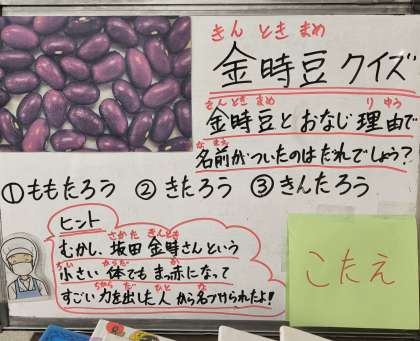 きん とき まめ
金時豆 クイズ
きん とき まめ り ゆう
金時豆とおなじ理由で
な まえ
名前がついたのはだれでしょう?
①ももたろう ②きたろう ③きんたろう
ヒント
さかた きんとき
むかし、坂田 金時さんという
ちい からだ か
小さい 体でも まっ赤になって
ちから だ ひと な
すごい 力を出した人 から名づけられたよ!
こたえ